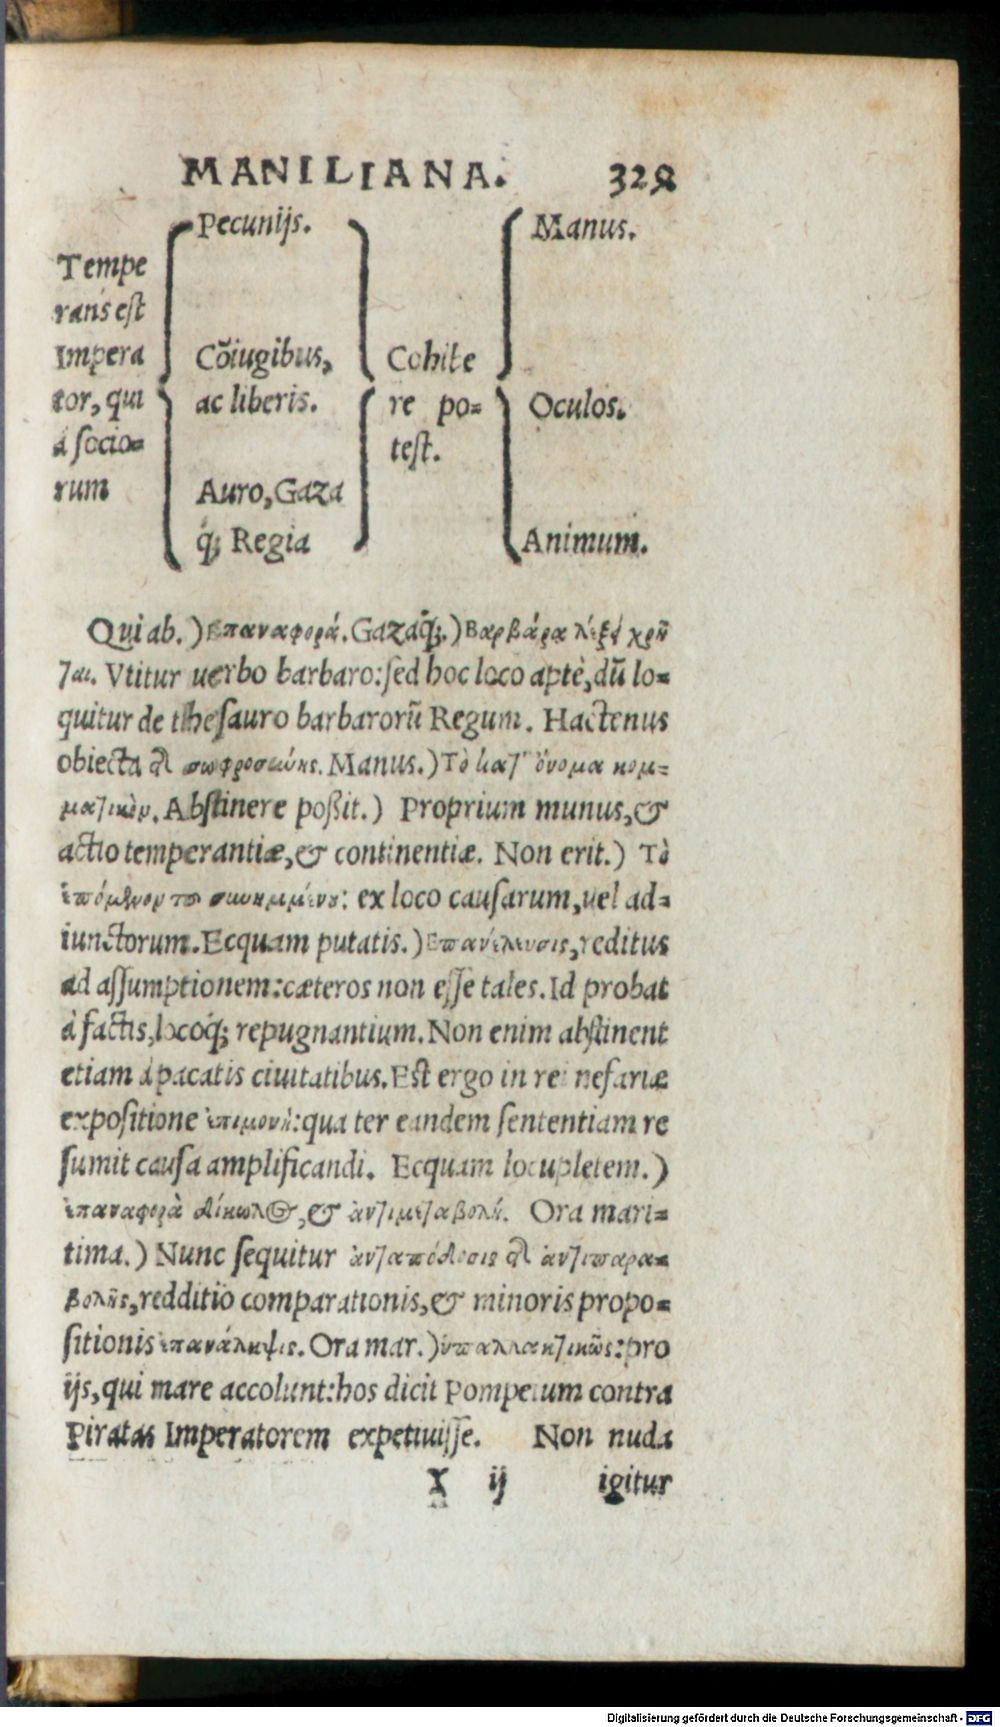 MANILIANA. 329
Tempe
rans est
Impera
tor, qui
à socio=
rum
Pecunijs.
Cõiugibus,
ac liberis.
Auro, Gaza
q́; Regia
Cohibe
re po=
test.
Manus.
Oculos.
Animum.
Qui ab.) Επαναφορά. Gazaq́;.) Βαρβάρα λέξις χρῆ
ται. Vtitur uerbo barbaro: sed hoc loco aptè, dũ lo=
quitur de thesauro barbarorũ Regum. Hactenus
obiecta τ͂ σωφροσύνης. Manus.) Τὸ κατ' ὄνομα κομ=
ματικὸν. Abstinere poßit.) Proprium munus, &
actio temperantiæ, & continentiæ. Non erit.) Τὸ
ἑπόμενον τοῦ συνημμένου: ex loco causarum, uel ad=
iunctorum. Ecquam putatis.) Επανέλευσις, reditus
ad assumptionem: cæteros non esse tales. Id probat
à factis, locoq́; repugnantium. Non enim abstinent
etiam à pacatis ciuitatibus. Est ergo in rei nefariæ
expositione ἐπιμονὴ: qua ter eandem sententiam re
sumit causa amplificandi. Ecquam locupletem.)
ἐπαναφορὰ δίκωλος, & ἀντιμεταβολή. Ora mari=
tima.) Nunc sequitur ἀνταπόδοσις τ͂ ἀντιπαρα=
βολῆς, redditio comparationis, & minoris propo=
sitionis ἐπανάληψις. Ora mar.) ὑπαλλακτικῶς: pro
ijs, qui mare accolunt: hos dicit Pompeium contra
Piratas Imperatorem expetiuisse. Non nuda
X ij igitur
Digitalisierung gefördert durch die Deutsche Forschungsgemeinschaft - DFG